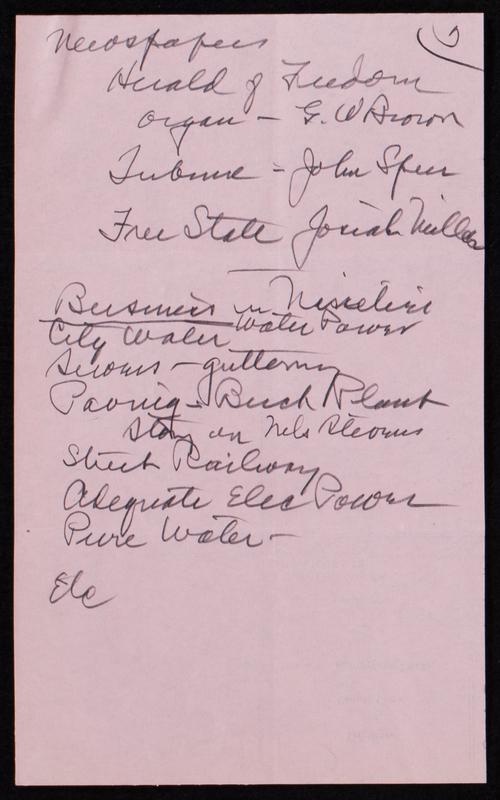 Newspapers
Herald of Freedom
Organ - G. W Brown
Tribune - John Speer
Free State Josiah Miller
Business in Nineties
City Water Water Power
Sewers - guttering
Paving - Brick Plant
Story on Nels Stevens
Street Railway
Adequate Elec Power
Pure Water -
Etc